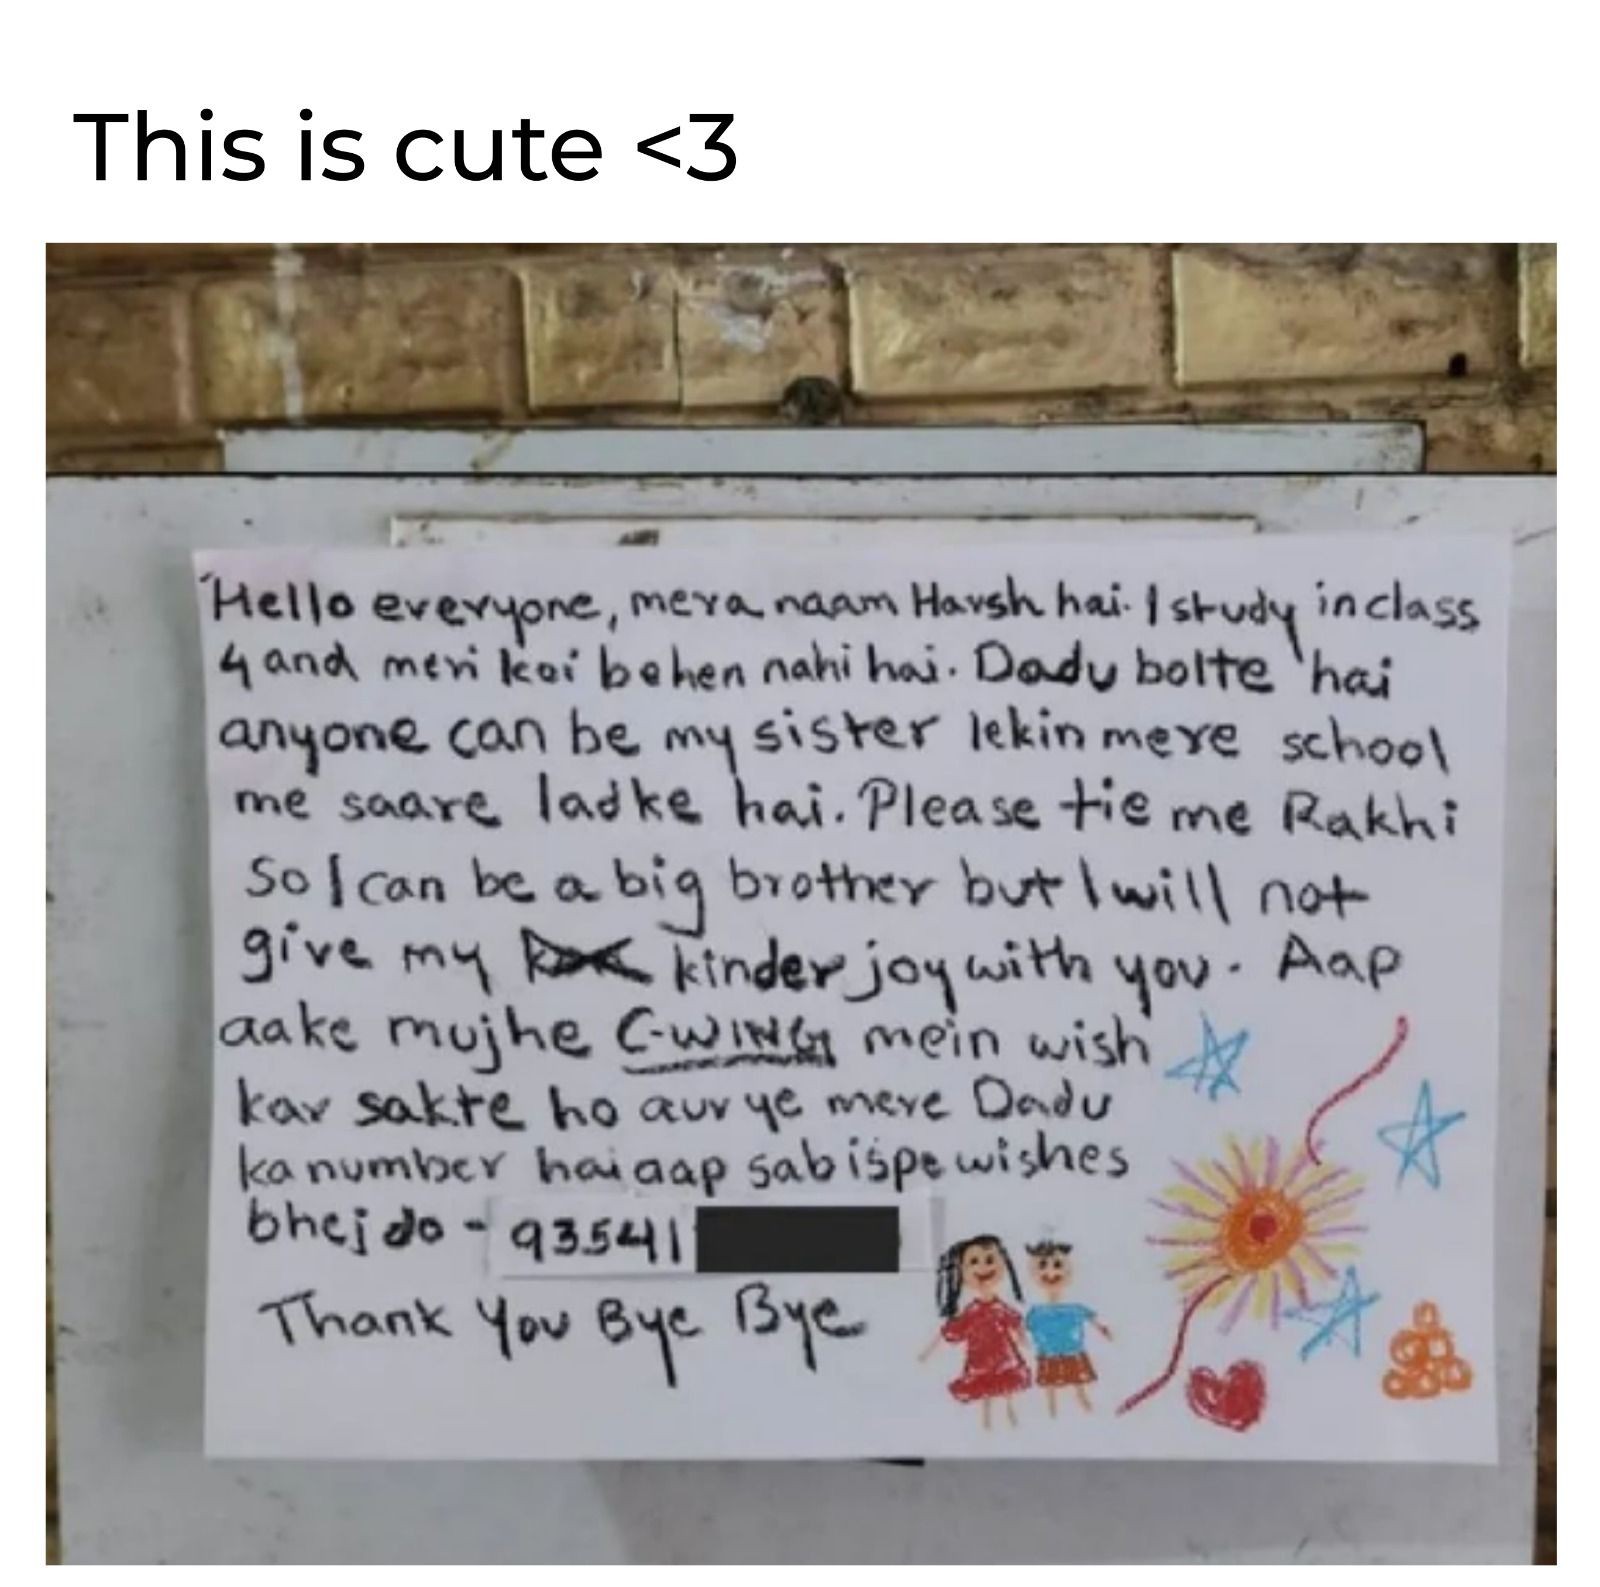 This is cute <3
Hello everyone, mera naam Harsh hai. I study in class
4 and meri koi behen nahi hai. Dadu bolte hai
anyone can be my sister lekin mere school
me saare ladke hai. Please tie me Rakhi
So I can be a big brother but I will not
give my kinder joy with you. Aap
aake mujhe C-WING mein wish
kar sakte ho aur ye mere Dadu
ka number hai aap sab ispe wishes
bhej do - 93541
Thank You Bye Bye